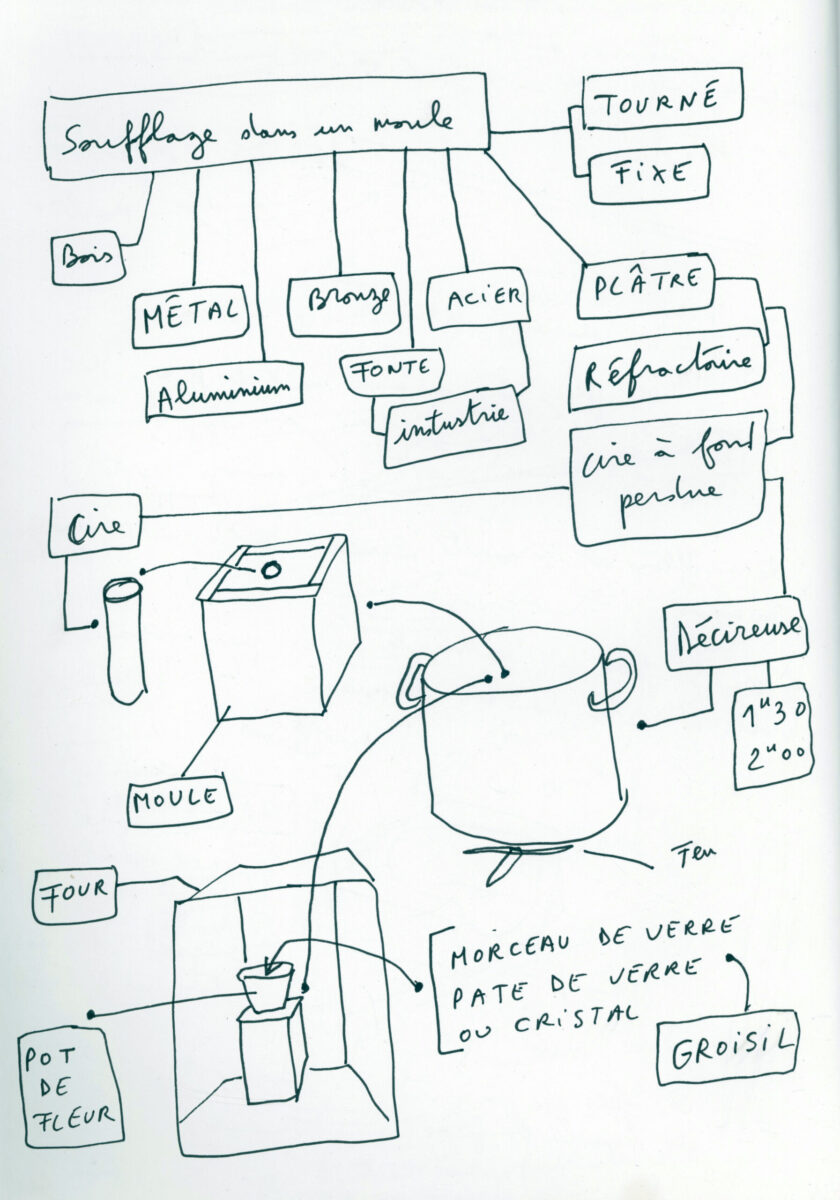 Soufflage dans un moule
TOURNÉ
FiXE
Bois
MÉTAL
Aluminium
Bronze
FONTE
ACiER
instustrie
PLÂTRE
Réfractaire
Cire à fond
perdue
Cire
Décireuse
1H30
2H00
MOULE
Feu
FOUR
MORCEAU DE VERRE
PATE DE VERRE
OU CRISTAL
GROiSiL
POT
DE
FLEUR